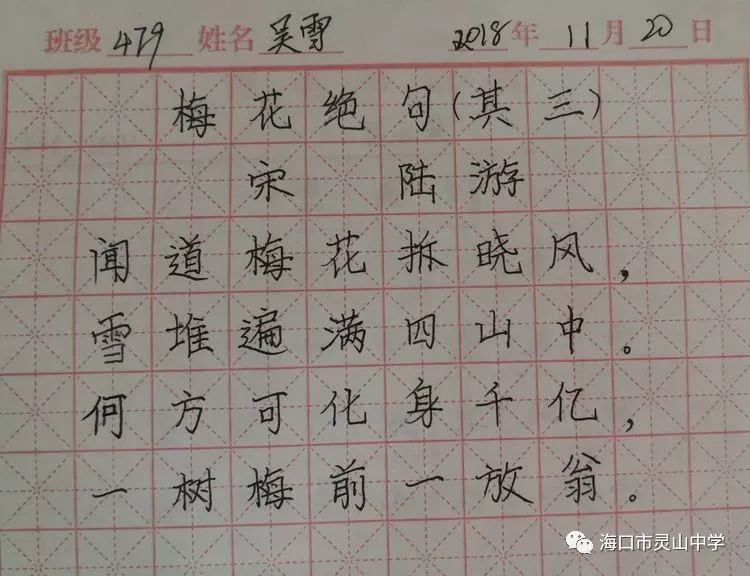 班级 479 姓名 吴雪 2018年 11月 20日
梅花绝句(其三)
宋 陆游
闻道梅花拆晓风,
雪堆遍满四山中。
何方可化身千亿,
一树梅前一放翁。
海口市灵山中学